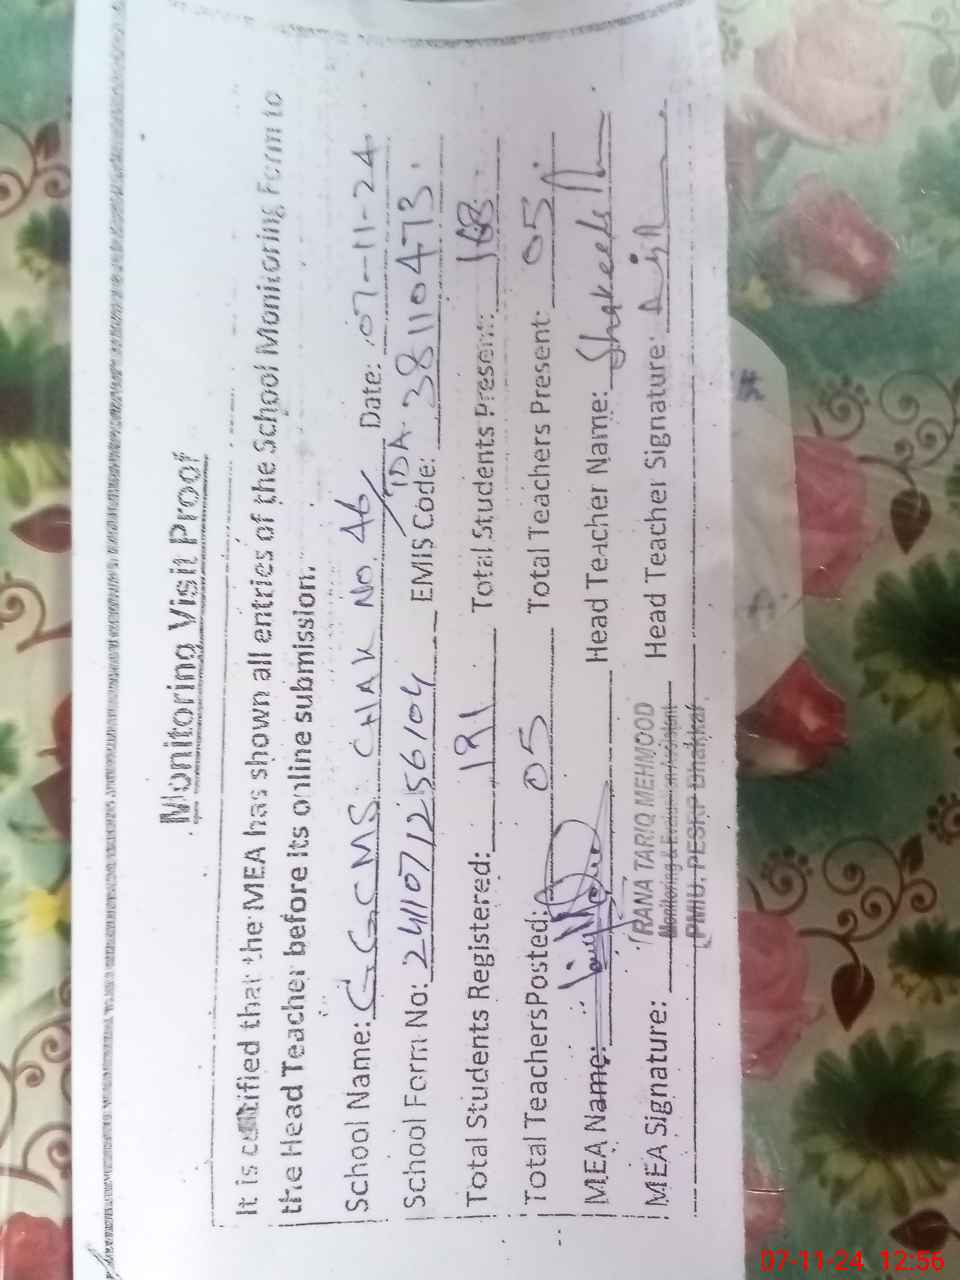 Monitoring Visit Proof
It is certified that the MEA has shown all entries of the School Monitoring Form to
the Head Teacher before its online submission.
School Name: GGCMS CHAK NO. 46/TDA Date: 07-11-24
School Form No: 2411071256104 EMIS Code: 38110473
Total Students Registered: 191 Total Students Present: 168
Total Teachers Posted: 05 Total Teachers Present: 05
MEA Name: Head Teacher Name: Shakeela
RANA TARIQ MEHMOOD
Monitoring & Evaluation Assistant
PMIU, PESRP Bhakkar
MEA Signature: Head Teacher Signature:
07-11-24 12:56